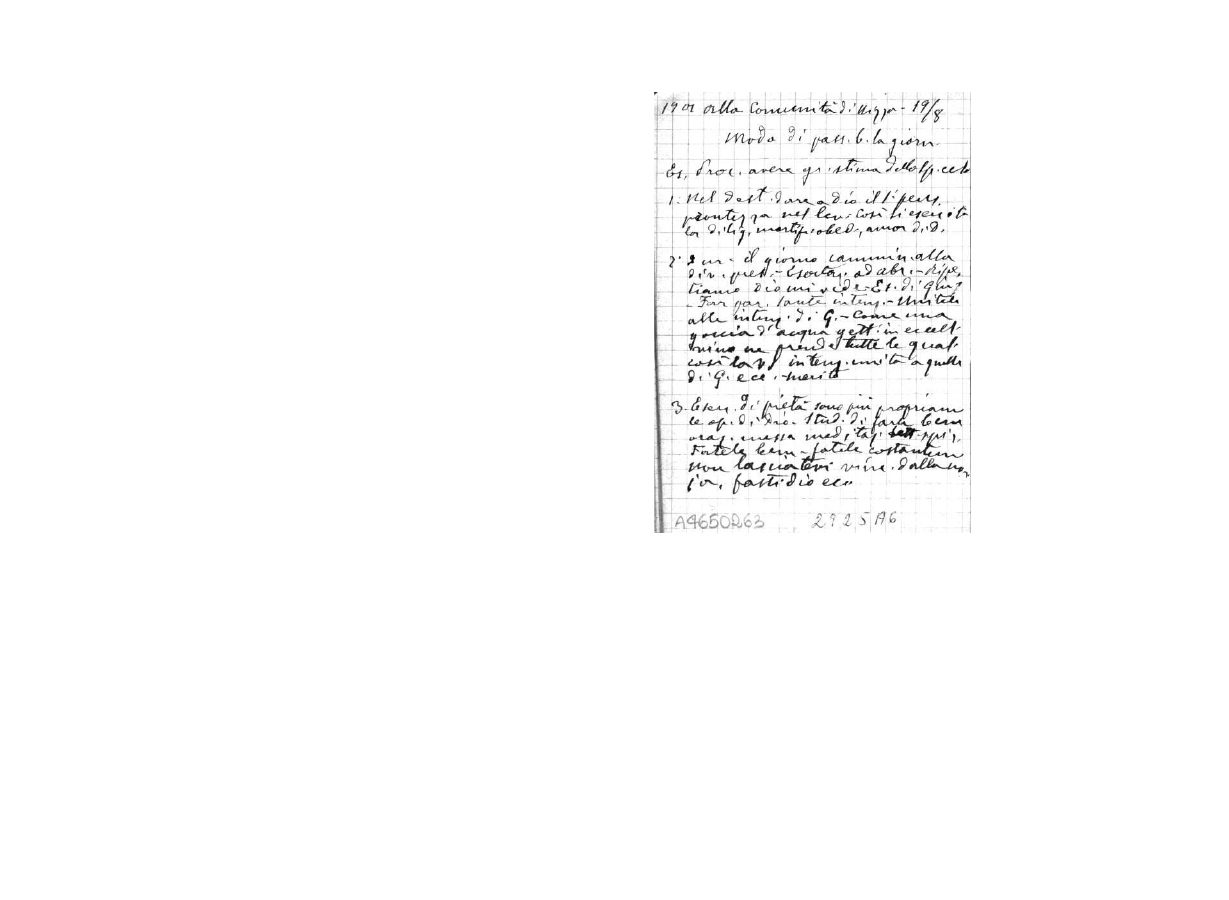 1901 alla Comunità di Nizza - 19/8
Modo di pass. b. la giorn.
Es. Proc. avere gr. stima dello sp. ecc
1. Nel dest. dare a dio il 1° pens.
prontezza nel lev. così si esercita
la dilig. mortif. obed., amor di d.
2° Dur. il giorno cammin. alla
div. pres. - Esortaz. ad abr. - Ripe,
tiamo Dio mi vede - Es. di
- Far sante intenz. - Unitele
alle intenz. di G. - Come una
goccia d'acqua gett. in eccell.
vino ne prende tutte le qual.
così la intenz. unita a quelle
di G. ecc. - merito
3. Eserc. di pietà sono più propriam
le op. di Dio. Stud. di farle bene
oraz. messa meditaz. lett. spir.
Fatele bene - fatele costantem
non lasciatevi vinc. dalla no,
ja, fastidio ecc
A4650263 2925A6